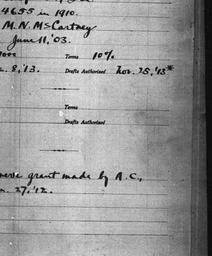 4655 in 1910.
M. N. McCartney
June 11, '03.
Terms 10%
8, '13. Drafts Authorized Nov. 25, '13*
Terms
Drafts Authorized
grant made by A. C.,
27, '12.